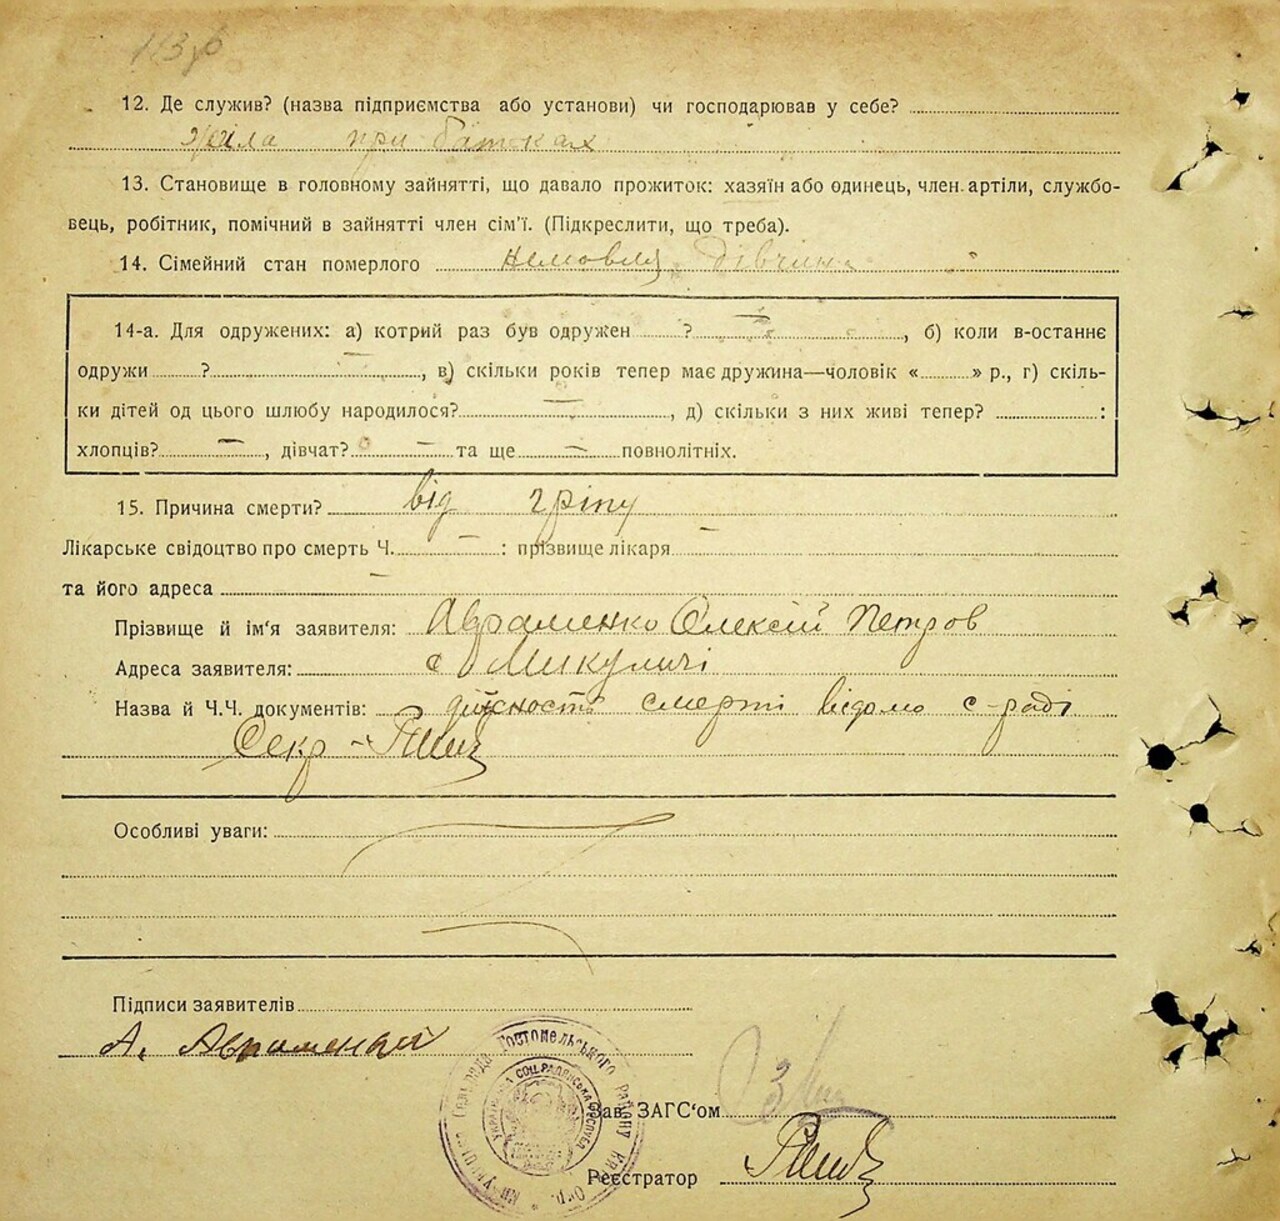 12. Де служив? (назва підприємства або установи) чи господарював у себе?
жила при батьках
13. Становище в головному зайнятті, що давало прожиток: хазяїн або одинець, член артіли, службо-
вець, робітник, помічний в зайнятті член сім'ї. (Підкреслити, що треба).
14. Сімейний стан померлого немовля, дівчина
14-а. Для одружених: а) котрий раз був одружен ? —, б) коли в-останнє
одружи ? —, в) скільки років тепер має дружина—чоловік « » р., г) скіль-
ки дітей од цього шлюбу народилося? —, д) скільки з них живі тепер? :
хлопців? —, дівчат? — та ще — повнолітніх.
15. Причина смерти? від гріпу
Лікарське свідоцтво про смерть Ч. — : прізвище лікаря —
та його адреса —
Прізвище й ім'я заявителя: Авраменко Олексій Петров
Адреса заявителя: с Микуличі
Назва й Ч.Ч. документів: дійсность смерті відомо с-раді
Секр -
Особливі уваги:
Підписи заявителів
А. Авраменкой
Сільрада Гостомельського Району Ки Окр.
УКРАЇНСЬКА СОЦ. РАДЯНСЬКА РЕСПУБ
Зав. ЗАГС'ом
Реєстратор